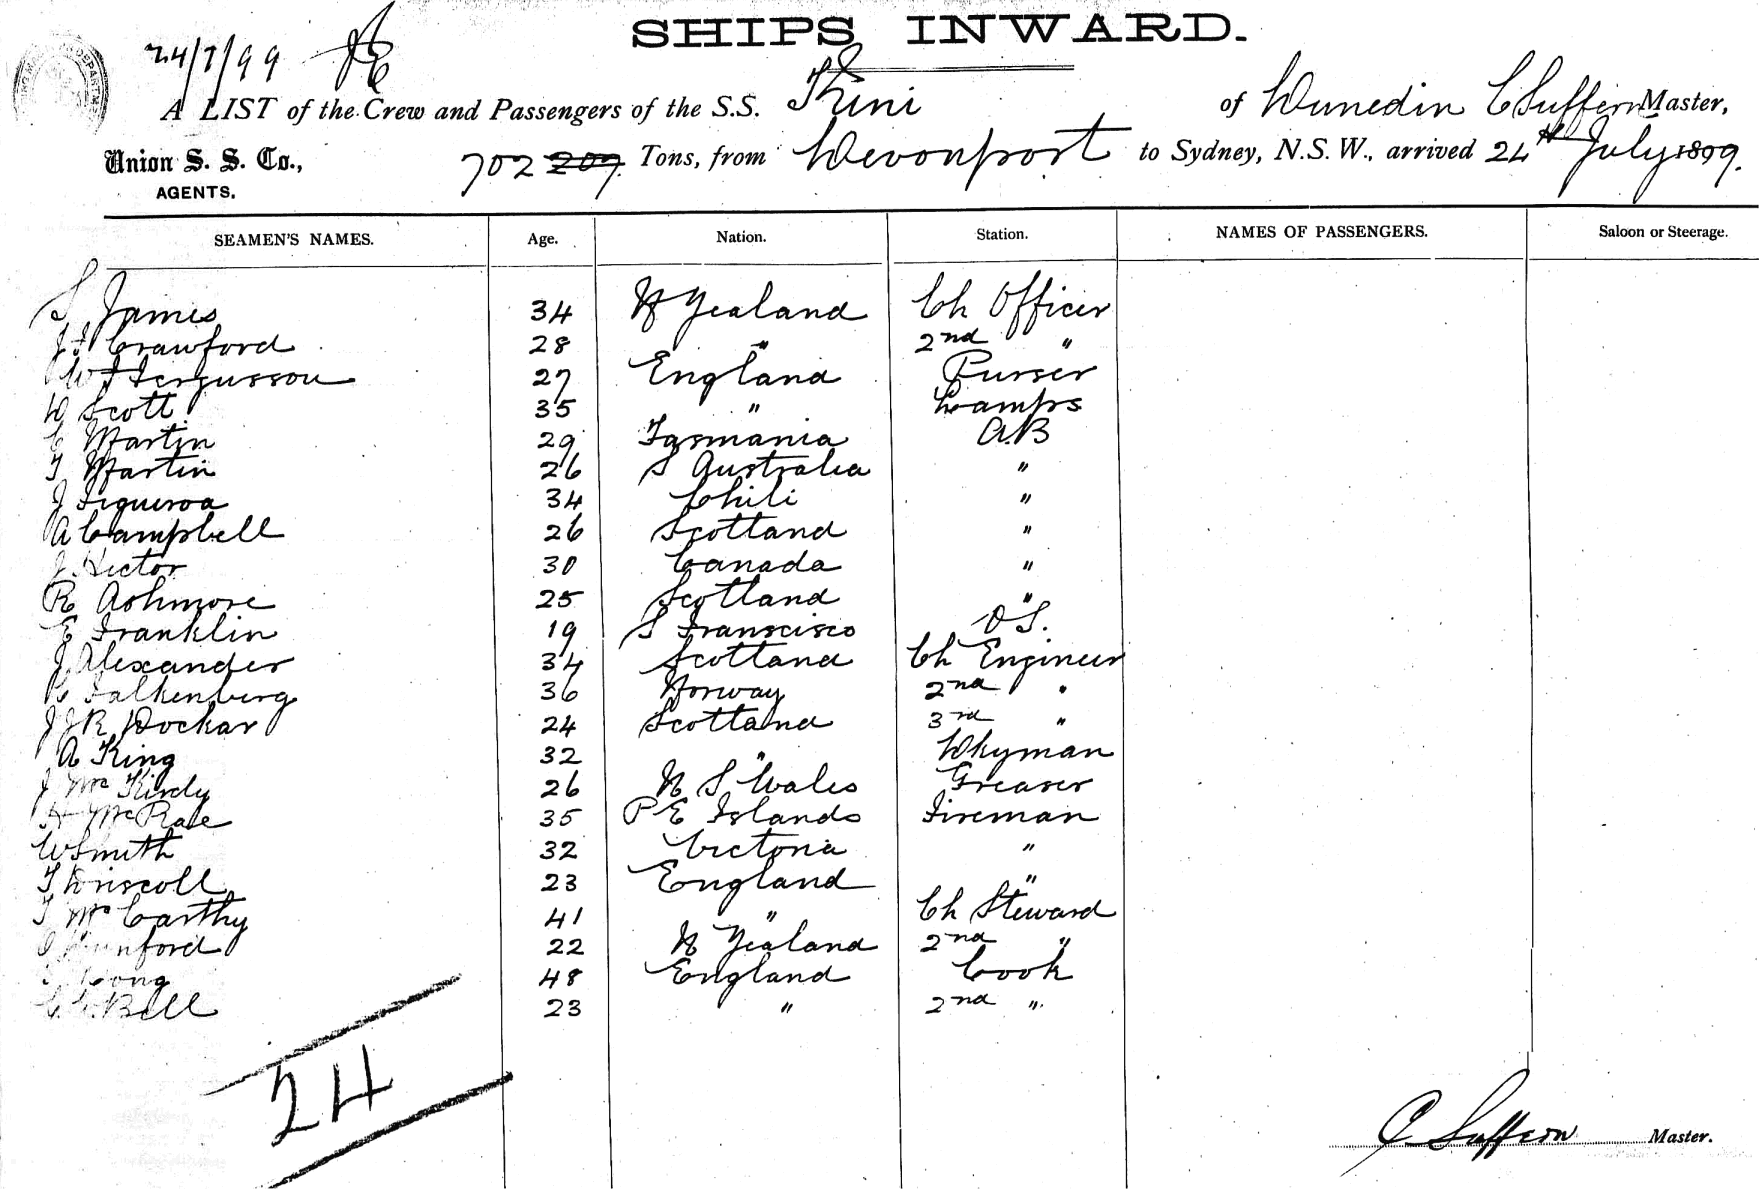 SHIPS INWARD.
24/7/99
A LIST of the Crew and Passengers of the S.S. Kini of Dunedin C Suffern Master,
Union S. S. Co., AGENTS. 702 209 Tons, from Devonport to Sydney, N.S.W., arrived 24th July 1899.
SEAMEN'S NAMES. Age. Nation. Station. NAMES OF PASSENGERS. Saloon or Steerage.
S James 34 N Zealand Ch Officer
J F Crawford 28 " 2nd "
W F Fergusson 27 England Purser
W Scott 35 " Lamps
C Martin 29 Tasmania A.B
T Martin 26 S Australia "
J Figueroa 34 Chili "
A Campbell 26 Scotland "
J Hector 30 Canada "
R Ashmore 25 Scotland "
E Franklin 19 S Franscisco O S.
J Alexander 34 Scotland Ch Engineer
Falkenberg 36 Norway 2nd "
J J R Dockar 24 Scotland 3rd "
A King 32 " Dkyman
J McKirdy 26 N S Wales Greaser
H McRae 35 P E Islands Fireman
W Smith 32 Victoria "
T Driscoll 23 England "
T McCarthy 41 " Ch Steward
22 N Zealand 2nd "
48 England Cook
Bell 23 " 2nd "
24
C Suffern Master.